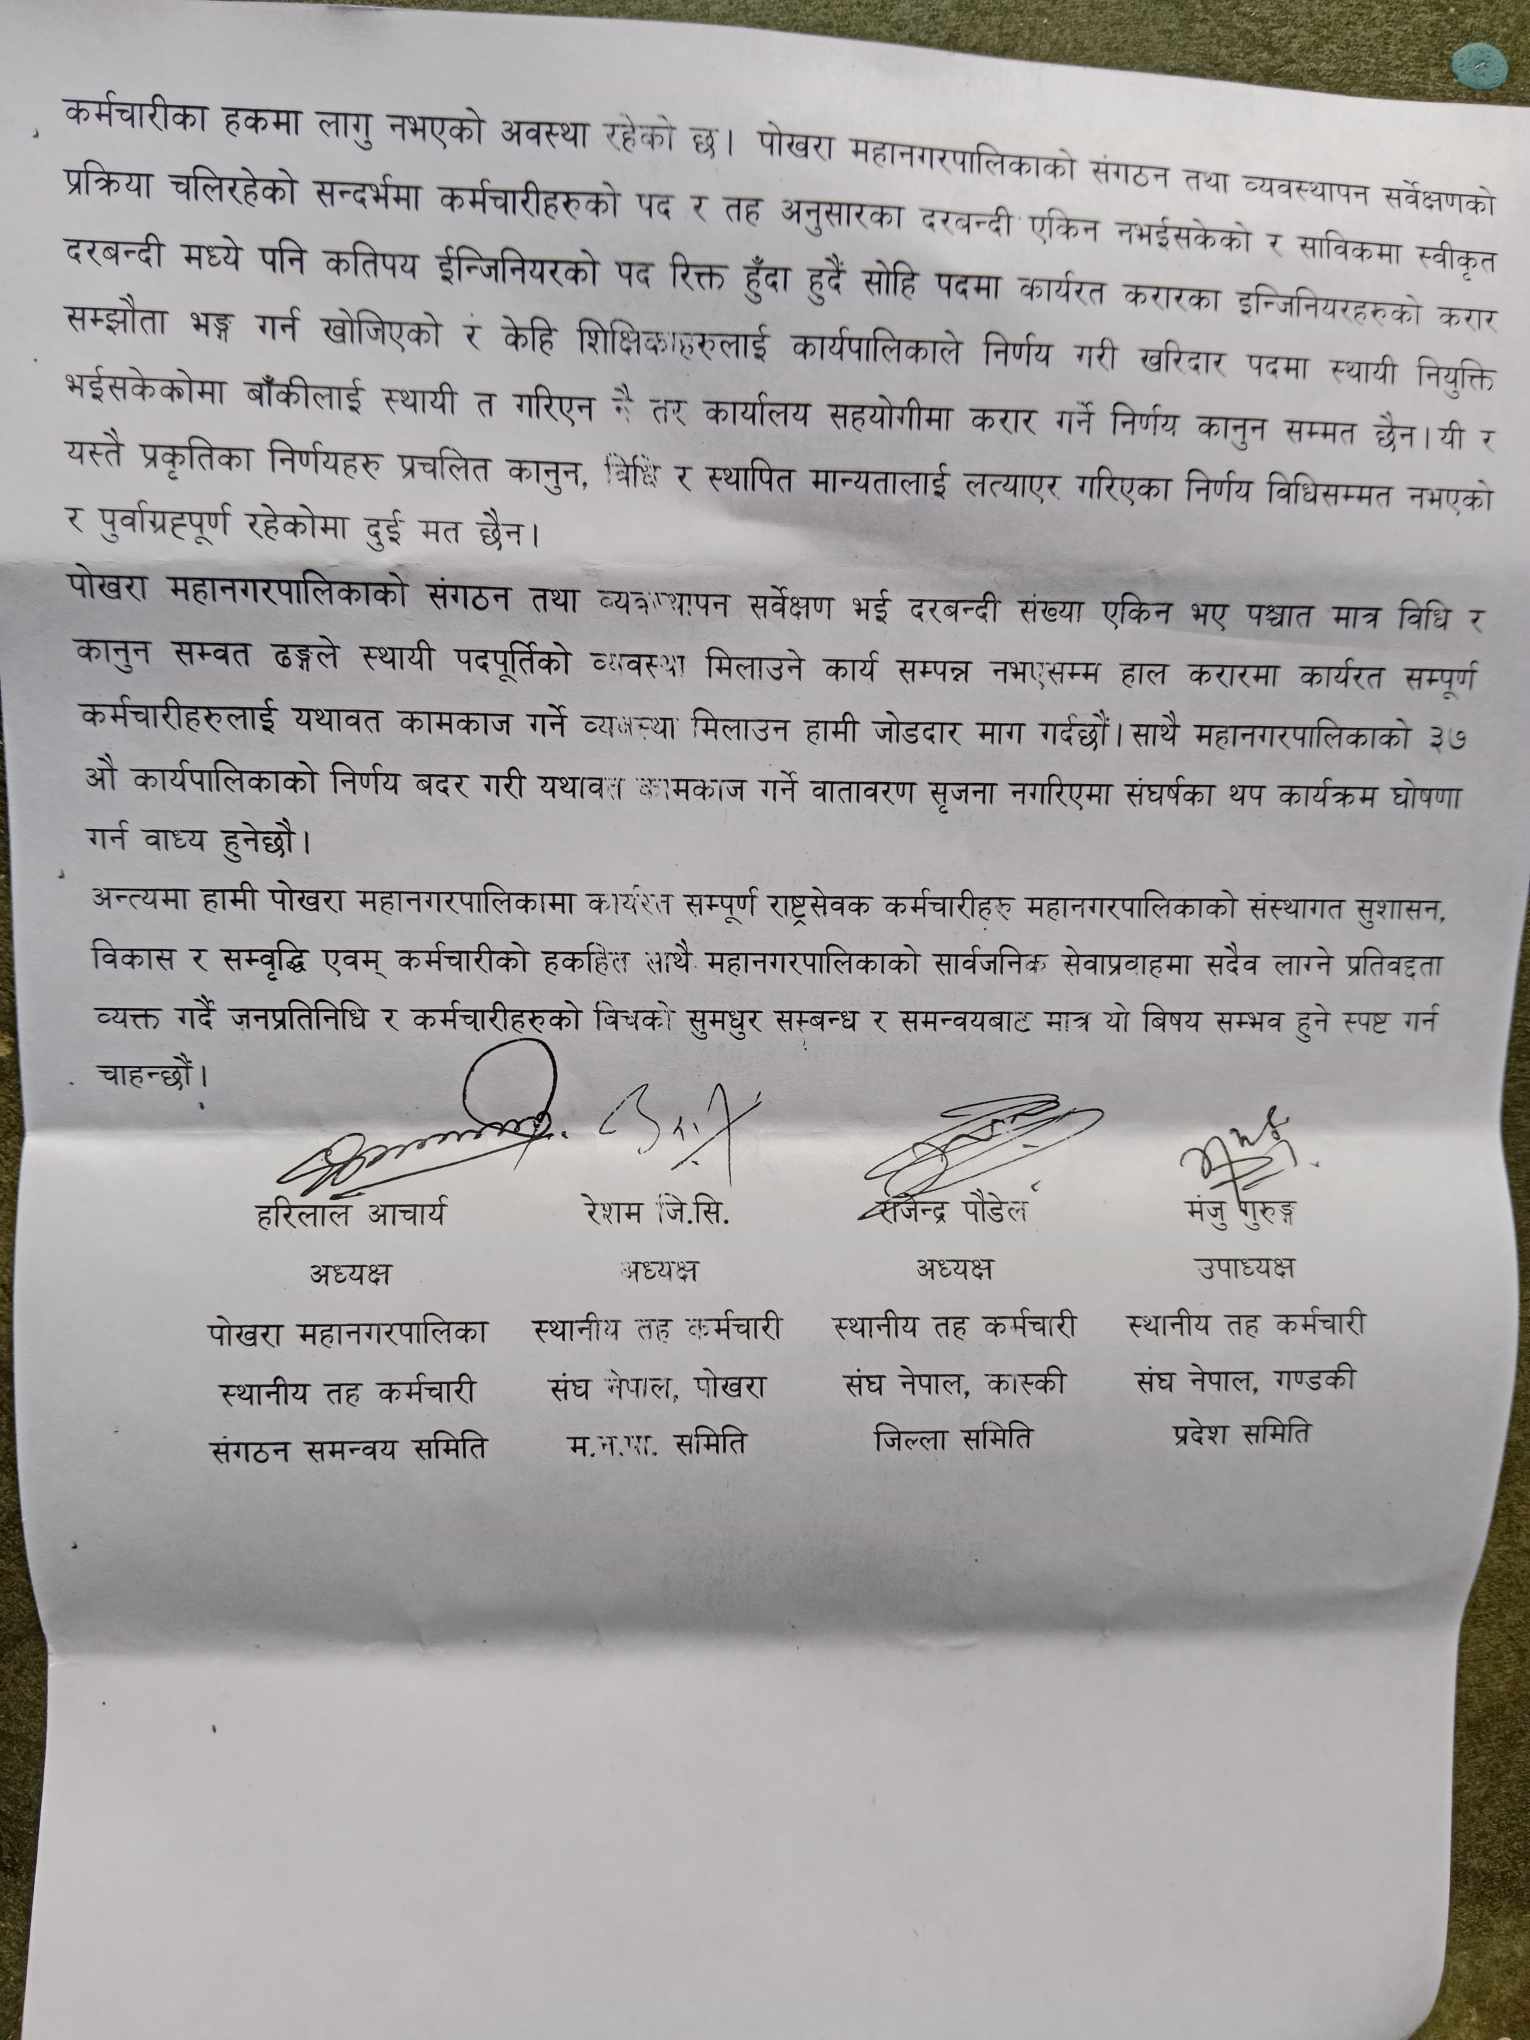 कर्मचारीका हकमा लागु नभएको अवस्था रहेको छ। पोखरा महानगरपालिकाको संगठन तथा व्यवस्थापन सर्वेक्षणको
प्रक्रिया चलिरहेको सन्दर्भमा कर्मचारीहरुको पद र तह अनुसारका दरबन्दी एकिन नभईसकेको र साविकमा स्वीकृत
दरबन्दी मध्ये पनि कतिपय ईन्जिनियरको पद रिक्त हुँदा हुदैं सोहि पदमा कार्यरत करारका इन्जिनियरहरुको करार
सम्झौता भङ्ग गर्न खोजिएको र केहि शिक्षिकाहरुलाई कार्यपालिकाले निर्णय गरी खरिदार पदमा स्थायी नियुक्ति
भईसकेकोमा बाँकीलाई स्थायी त गरिएन नै तर कार्यालय सहयोगीमा करार गर्ने निर्णय कानुन सम्मत छैन। यी र
यस्तै प्रकृतिका निर्णयहरु प्रचलित कानुन, बिधि र स्थापित मान्यतालाई लत्याएर गरिएका निर्णय विधिसम्मत नभएको
र पुर्वाग्रहपूर्ण रहेकोमा दुई मत छैन।
पोखरा महानगरपालिकाको संगठन तथा व्यवस्थापन सर्वेक्षण भई दरबन्दी संख्या एकिन भए पश्चात मात्र विधि र
कानुन सम्वत ढङ्गले स्थायी पदपूर्तिको व्यवस्था मिलाउने कार्य सम्पन्न नभएसम्म हाल करारमा कार्यरत सम्पूर्ण
कर्मचारीहरुलाई यथावत कामकाज गर्ने व्यवस्था मिलाउन हामी जोडदार माग गर्दछौं। साथै महानगरपालिकाको ३७
औ कार्यपालिकाको निर्णय बदर गरी यथावत कामकाज गर्ने वातावरण सृजना नगरिएमा संघर्षका थप कार्यक्रम घोषणा
गर्न वाध्य हुनेछौ।
अन्त्यमा हामी पोखरा महानगरपालिकामा कार्यरत सम्पूर्ण राष्ट्रसेवक कर्मचारीहरु महानगरपालिकाको संस्थागत सुशासन,
विकास र सम्वृद्धि एवम् कर्मचारीको हकहित साथै महानगरपालिकाको सार्वजनिक सेवाप्रवाहमा सदैव लाग्ने प्रतिवद्दता
व्यक्त गर्दै जनप्रतिनिधि र कर्मचारीहरुको बिचको सुमधुर सम्बन्ध र समन्वयबाट मात्र यो बिषय सम्भव हुने स्पष्ट गर्न
चाहन्छौं।
हरिलाल आचार्य रेशम जि.सि. राजेन्द्र पौडेल मंजु गुरुङ्ग
अध्यक्ष अध्यक्ष अध्यक्ष उपाध्यक्ष
पोखरा महानगरपालिका स्थानीय तह कर्मचारी स्थानीय तह कर्मचारी स्थानीय तह कर्मचारी
स्थानीय तह कर्मचारी संघ नेपाल, पोखरा संघ नेपाल, कास्की संघ नेपाल, गण्डकी
संगठन समन्वय समिति म.न.पा. समिति जिल्ला समिति प्रदेश समिति